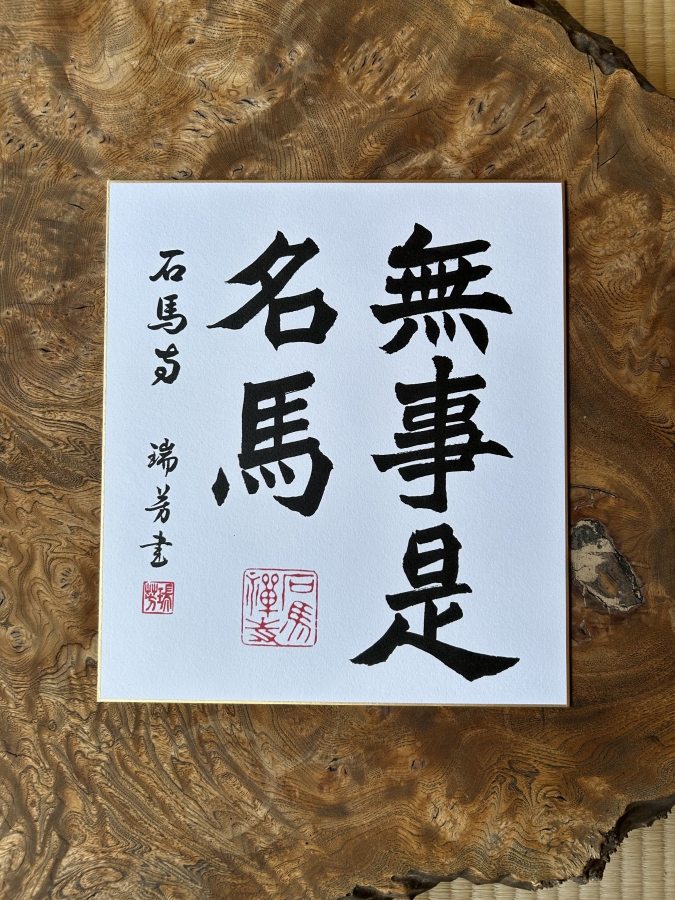 無事是
名馬
石馬禅寺
石馬寺 瑞芳書
瑞芳